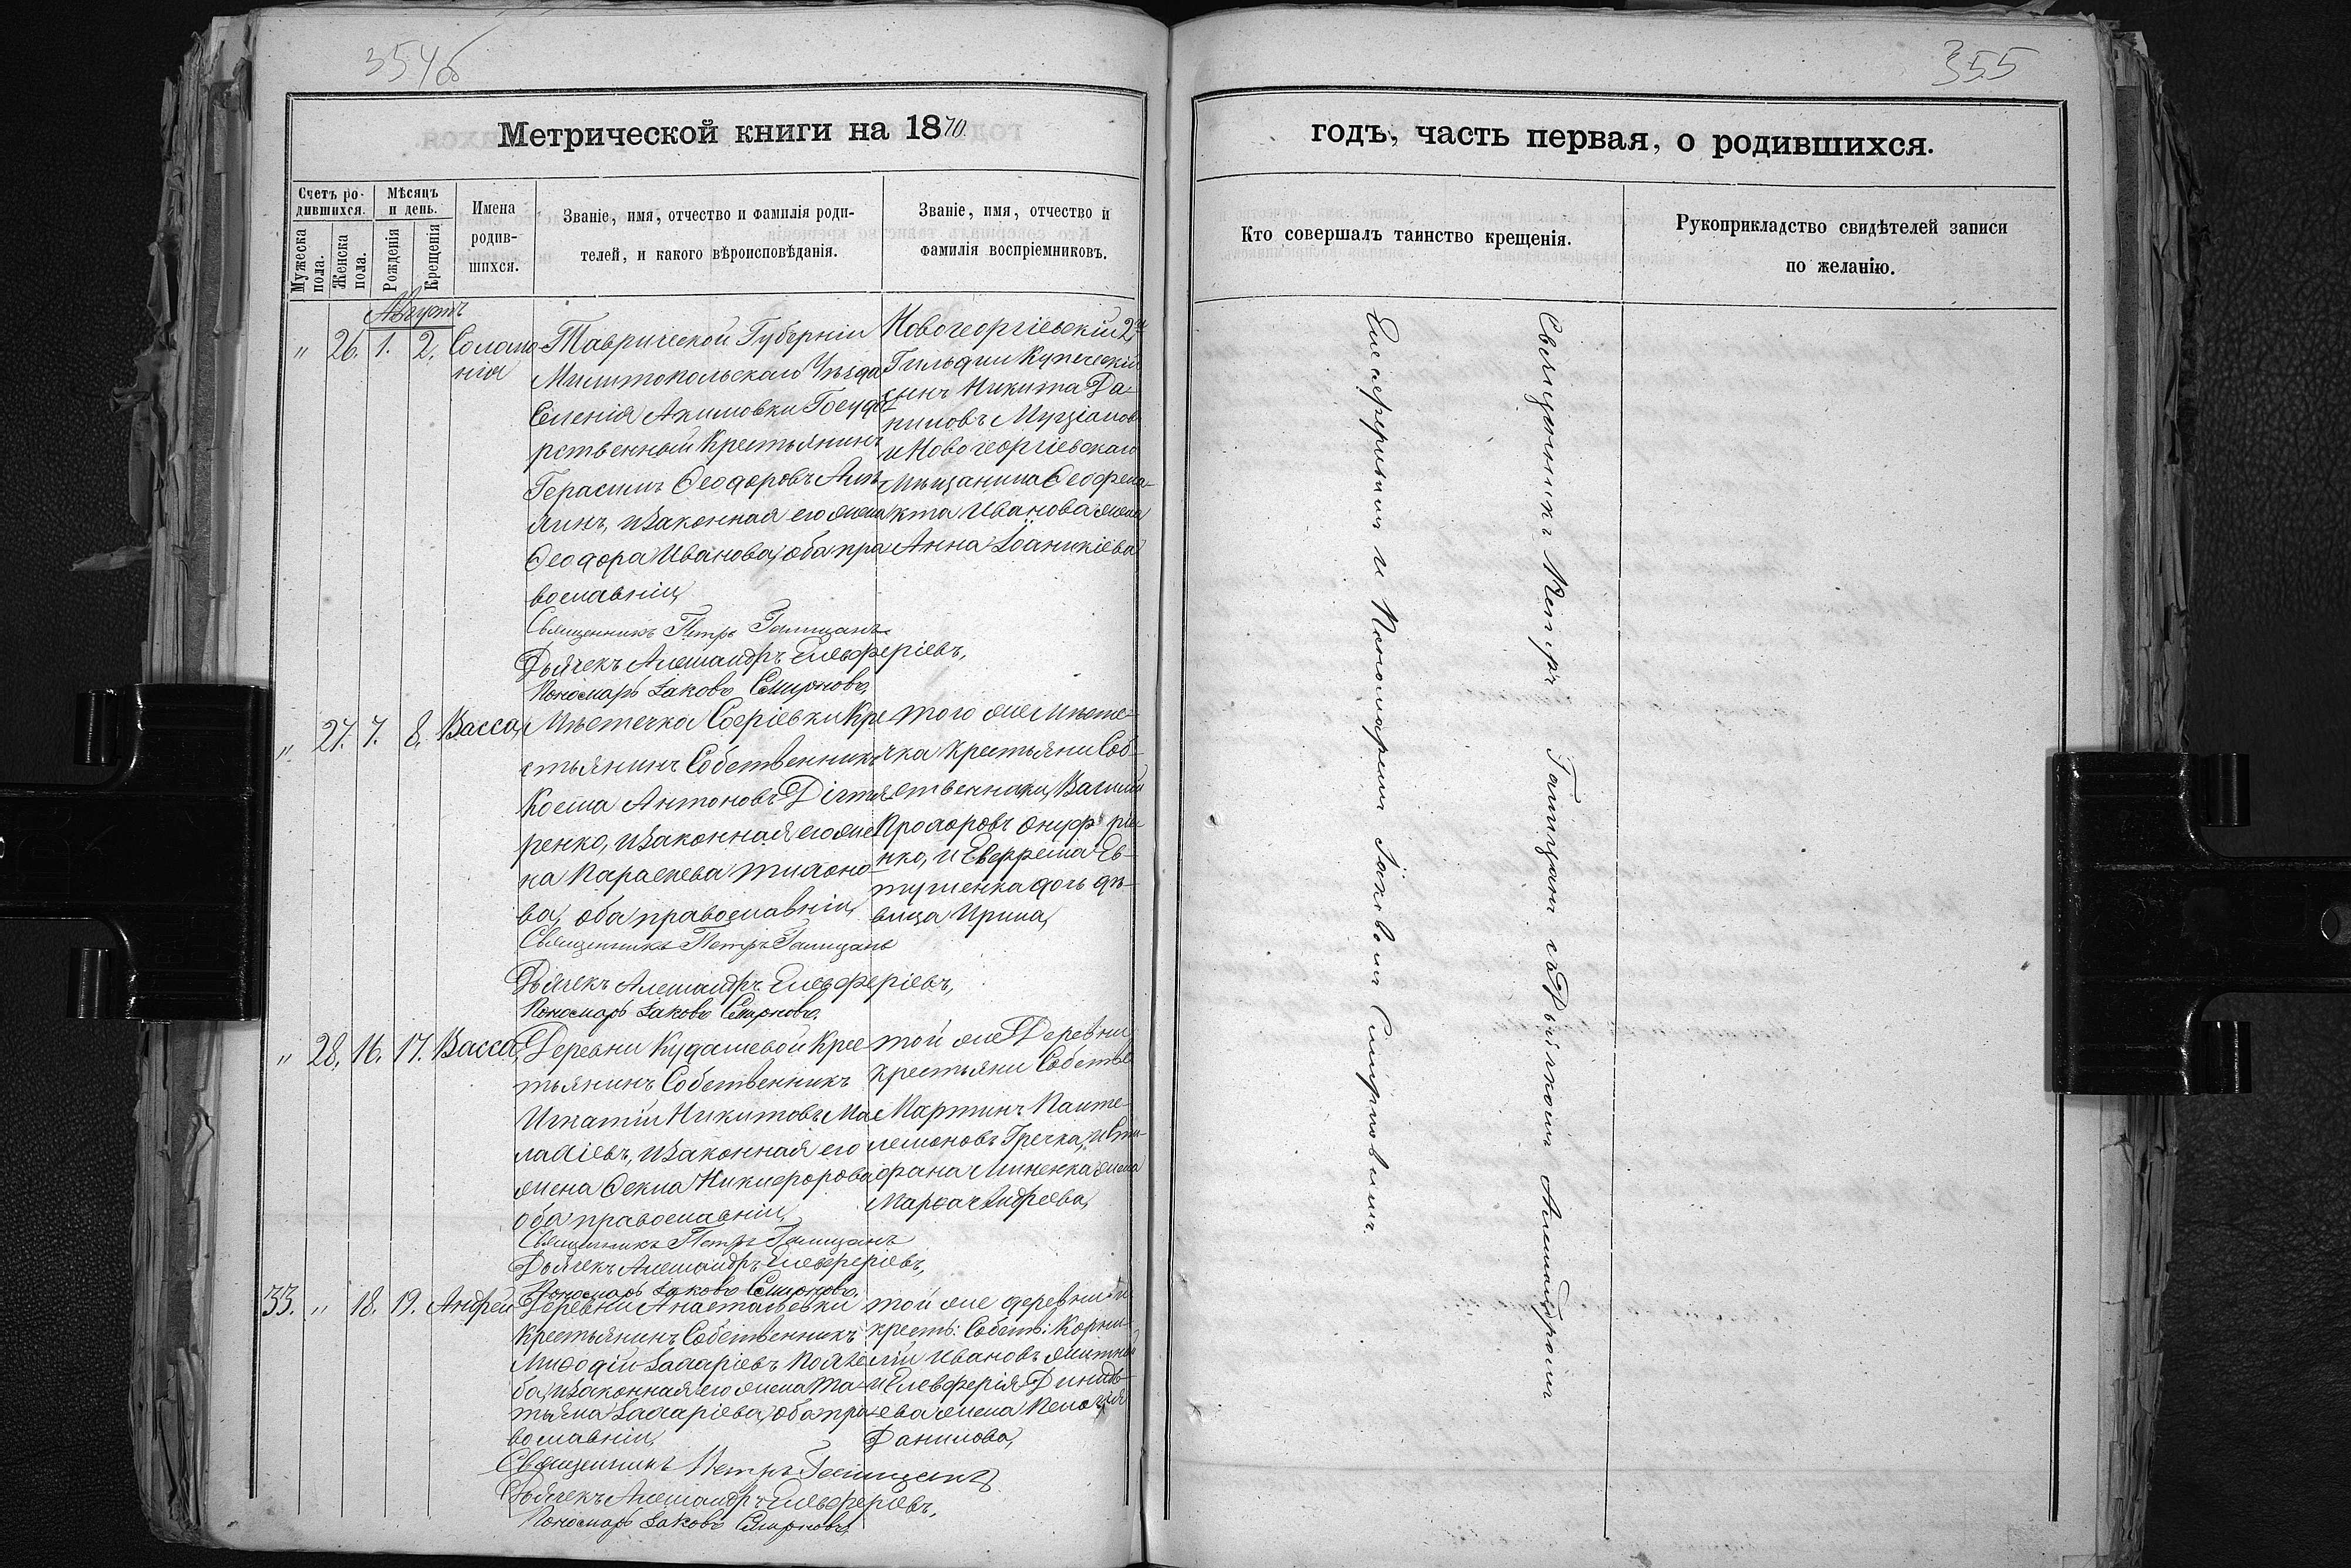 354б
355
Метрической книги на 1870.
годъ, часть первая, о родившихся.
Счетъ ро-
дившихся.
Мужеска пола.
Женска пола.
Мѣсяцъ
и день.
Рожденія
Крещенія
Имена
родив-
шихся.
Званіе, имя, отчество и фамилія роди-
телей, и какого вѣроисповѣданія.
Званіе, имя, отчество и
фамилія воспріемниковъ.
Кто совершалъ таинство крещенія.
Рукоприкладство свидѣтелей записи
по желанію.
Августъ
" 26. 1. 2. Солома-
нія
Таврической Губерніи
Милитопольскаго Уѣзда
Селенія Акимовки Госуда-
рственный Крестьянинъ
Герасимъ Ѳеодоровъ
и законная его жена
Ѳеодора Иванова, оба пра-
вославніи,
Священникъ Петръ Галицанъ
Дьячекъ Алешандръ Елевферіевъ,
Пономарь Іаковъ Смирновъ.
Новогеоргіевскій 2й
Гильдіи Купеческій
сынъ Никита Да-
ниловъ
и Новогеоргіевскаго
Мѣщанина Ѳеофила-
кта Иванова жена
Анна Іоаникіева
" 27. 7. 8. Васса,
Мѣстечка Софіевки Кре-
стьянинъ Собственникъ
Косма Антоновъ Дігтя-
ренко, и законная его же-
на Параскева Тихоно-
ва, оба православніи,
Священникъ Петръ Галицанъ
Дьячекъ Алешандръ Елевферіевъ,
Пономарь Іаковъ Смирновъ.
того же Мѣсте-
чка крестьяни Соб-
ственники, Василій
Прохоровъ Онуфріе-
нко, и Евфрема Ев-
тушенка дочь дѣ-
вица Ирина,
" 28. 16. 17. Васса,
Деревни Кудашевой Крес-
тьянинъ Собственникъ
Игнатій Никитовъ Ма-
лахіевъ, и законная его
жена Ѳекла Никифорова
оба православніи,
Священникъ Петръ Галицанъ
Дьячекъ Алешандръ Елевферіевъ,
Пономарь Іаковъ Смирновъ.
той же Деревни
крестьяни Собстве
Мартинъ Панте-
лемоновъ Гречка, и Сте-
фана Миненка жена
Марѳа Андреева,
33. " 18. 19. Андрей
Деревни Анастасьевки
Крестьянинъ Собственникъ
Миѳодій Захаріевъ Коляі-
ба, и законная его жена Та-
тьяна Захаріева, оба пра-
вославніи,
Священникъ Петръ Галицанъ
Дьячекъ Алешандръ Елевферіевъ,
Пономарь Іаковъ Смирновъ,
той же деревни
крестъ: Собств: Корни-
лій Ивановъ Житний
и Елевферія
жена Пелагія
Данилова,
Священникъ Петръ Галицанъ съ Дьячкомъ Алешандромъ
Елевферіевымъ и Пономаремъ Іаковомъ Смирновымъ.